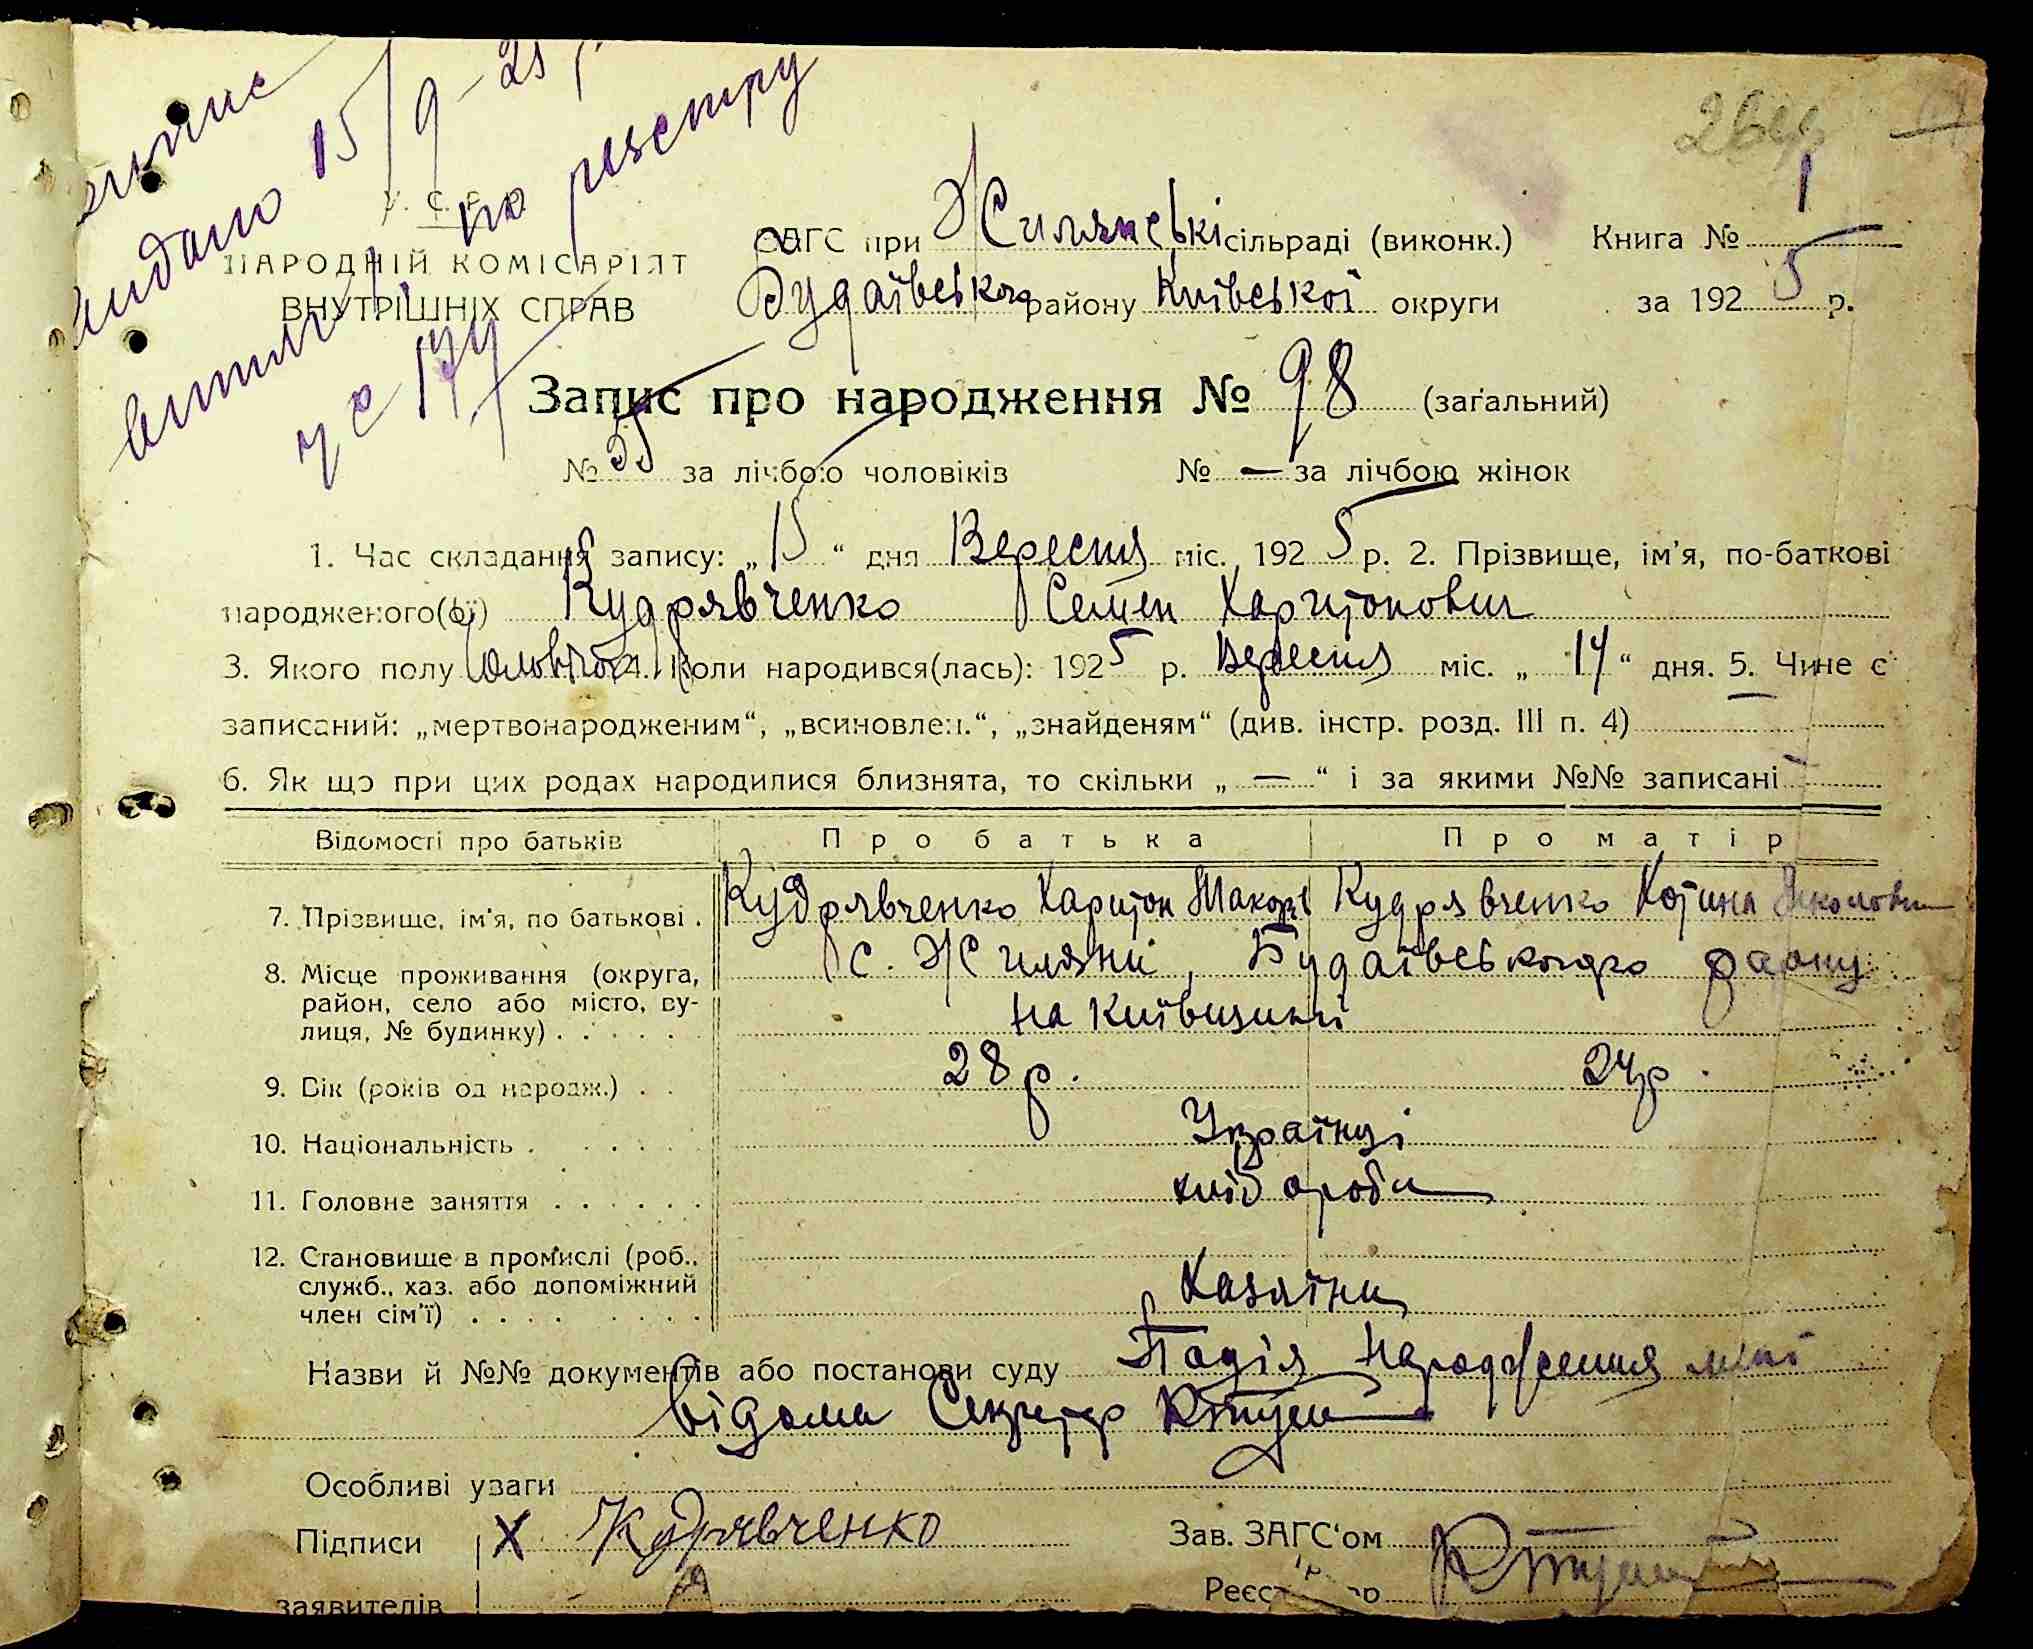 видано 15/9-25 р.
витяг по реєстру
за 174
У. С. Р. Р.
НАРОДНІЙ КОМІСАРІЯТ
ВНУТРІШНІХ СПРАВ
ЗАГС при Жилянській сільраді (виконк.) Книга № 1
Будаївського району Київської округи за 1925 р.
Запис про народження № 98 (загальний)
№ 55 за лічбою чоловіків № — за лічбою жінок
1. Час складання запису: „15“ дня Вересня міс. 1925 р. 2. Прізвище, ім'я, по-баткові
народженого(ої) Кудрявченко Семен Харитонович
3. Якого полу Чоловічого 4. Коли народився(лась): 1925 р. Вересня міс. „14“ дня. 5. Чи не є
записаний: „мертвонародженим“, „всиновлен.“, „знайденям“ (див. інстр. розд. III п. 4)
6. Як що при цих родах народилися близнята, то скільки „—“ і за якими №№ записані —
Відомості про батьків Про батька Про матір
7. Прізвище, ім'я, по батькові . Кудрявченко Харитон Макарів Кудрявченко
8. Місце проживання (округа, район, село або місто, вулиця, № будинку) . . . . . с. Жиляни, Будаївського району
на Київщині
9. Вік (років од народж.) . . 28 р. 24 р.
10. Національність . . . . . . Українці
11. Головне заняття . . . . . . хліборобы
12. Становище в промислі (роб., служб., хаз. або допоміжний член сім'ї) . . . . . . . . Хазяїни
Назви й №№ документів або постанови суду Подія народження мені
відома Секретар
Особливі уваги
Підписи X Кудрявченко Зав. ЗАГС'ом
заявителів